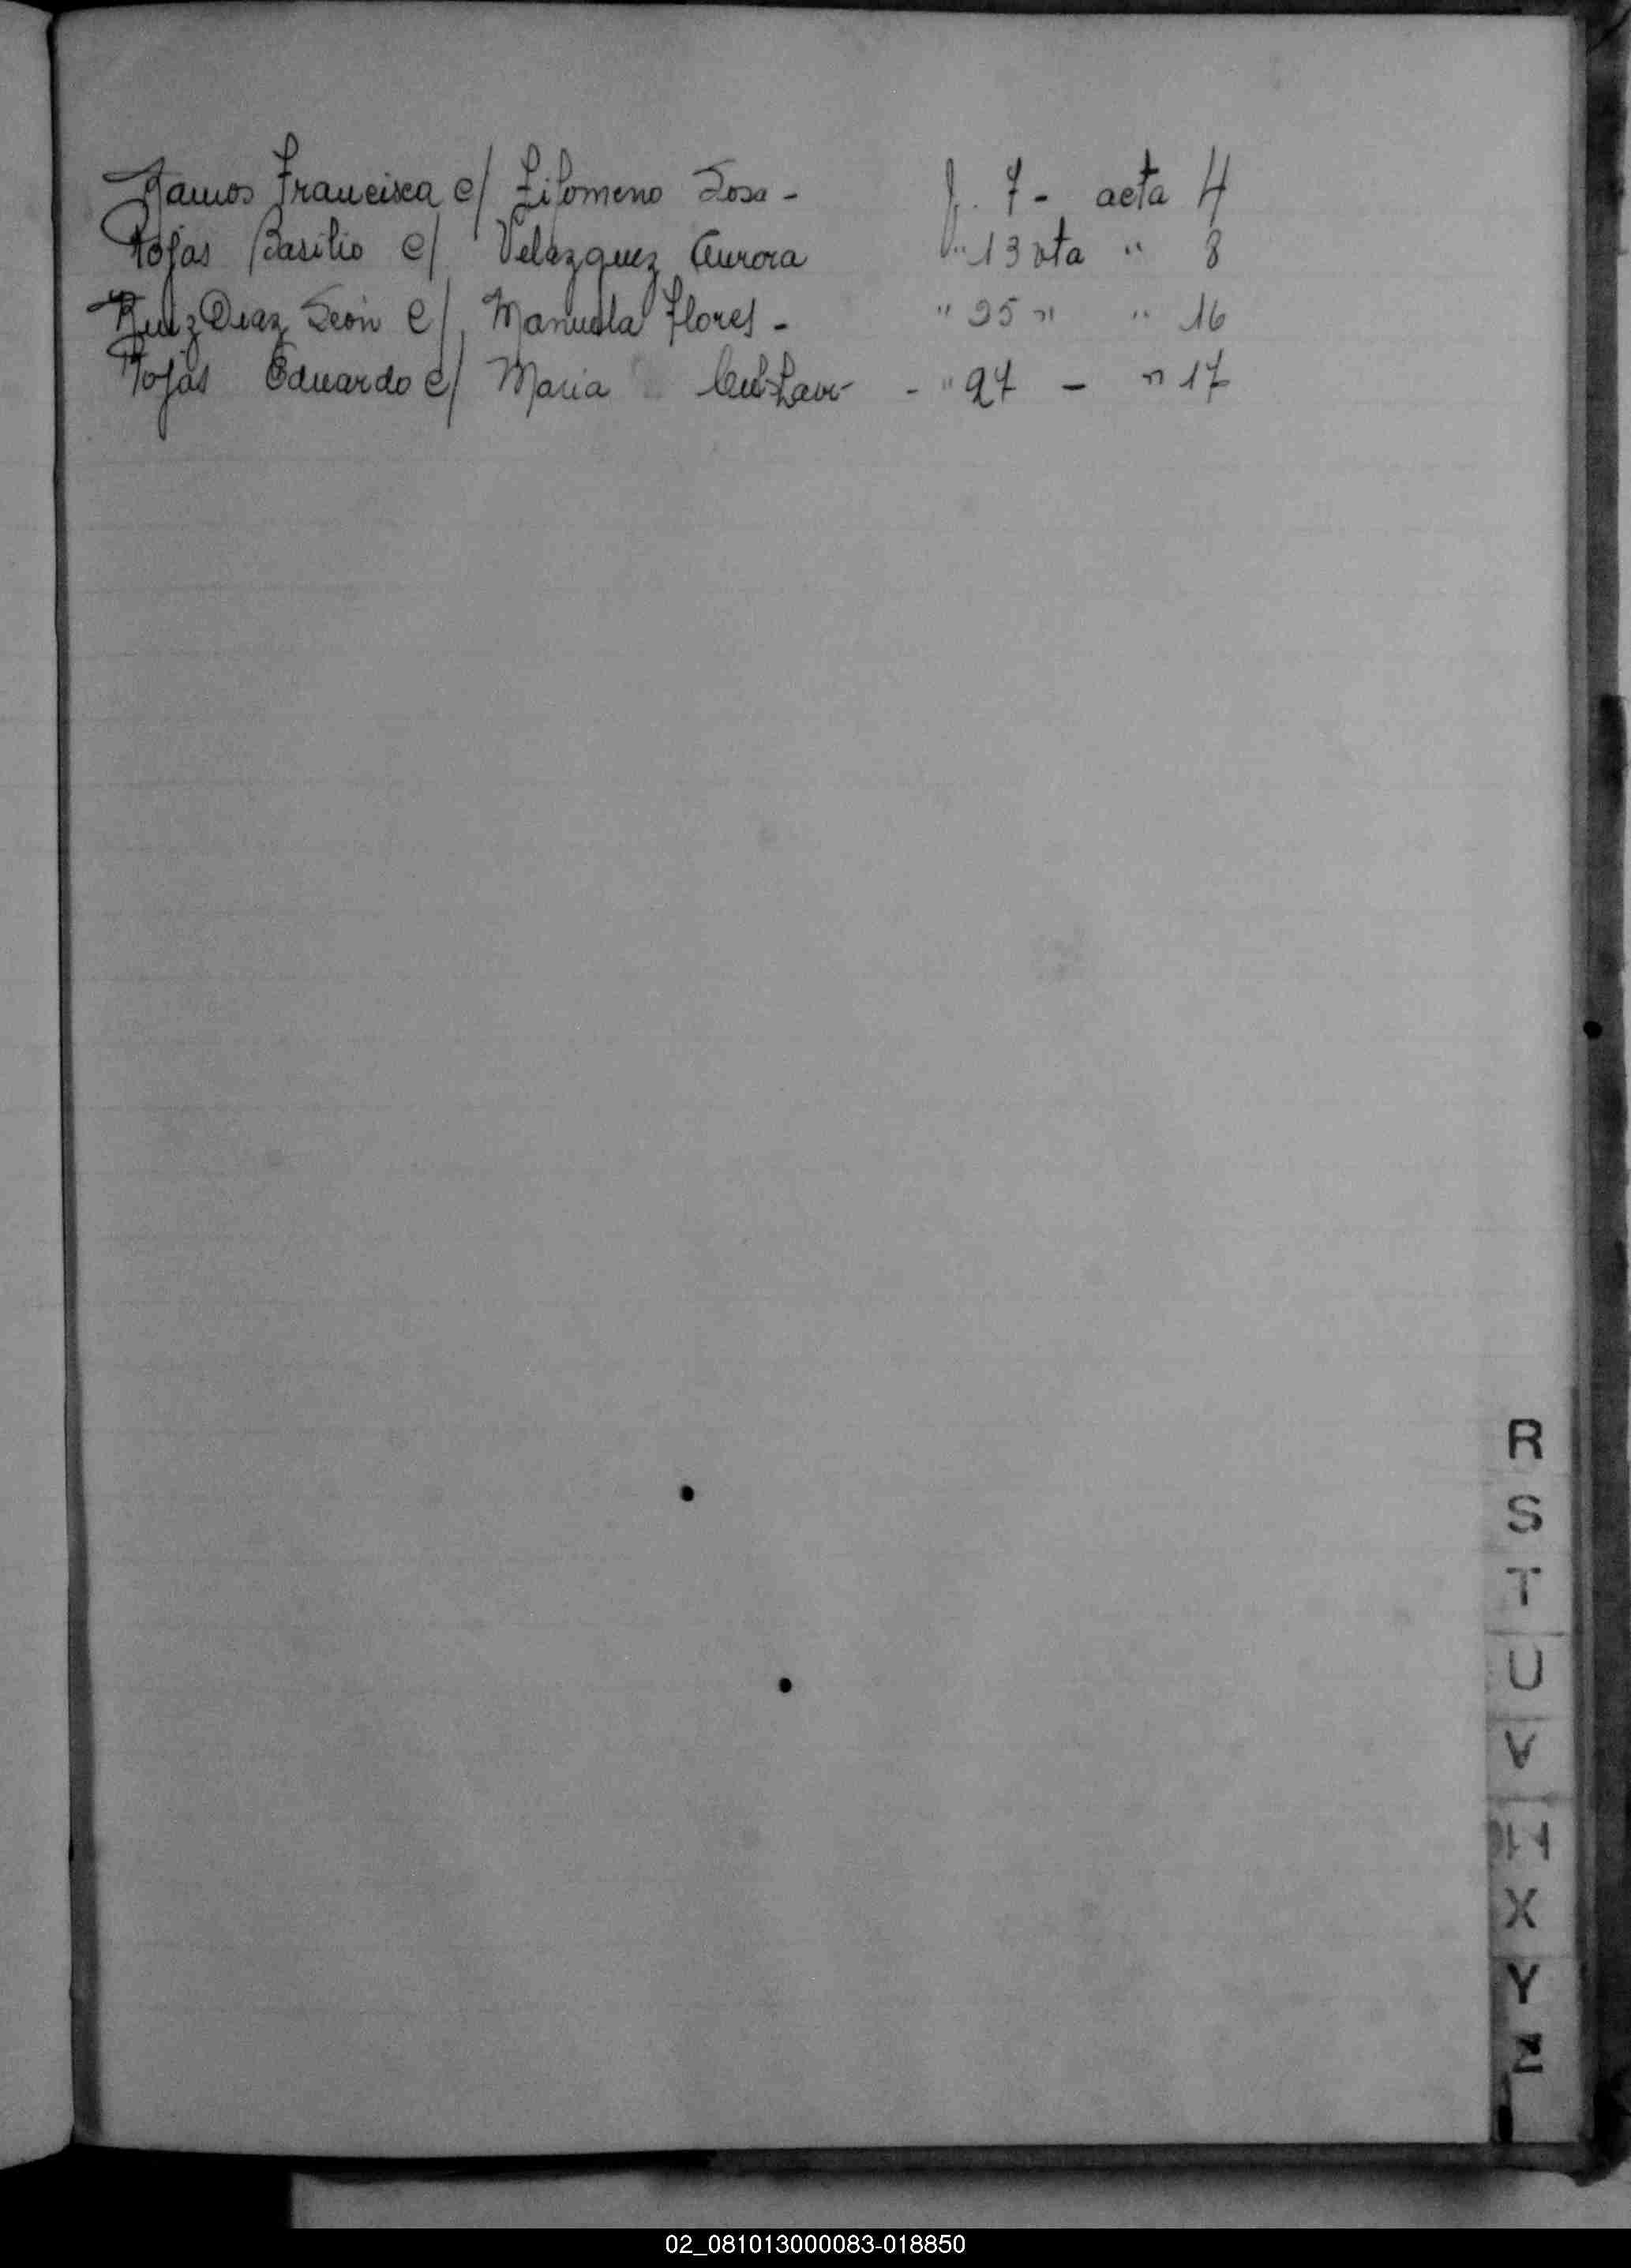 Ramos Francisca c/ Filomeno Sosa - f. 7 - acta 4
Rojas Basilio c/ Velazquez Aurora " 13 vta " 8
Ruiz Diaz León c/ Manuela Flores - " 25 " " 16
Rojas Eduardo c/ Maria - " 27 - " 17
R
S
T
U
V
W
X
Y
Z
02_081013000083-018850